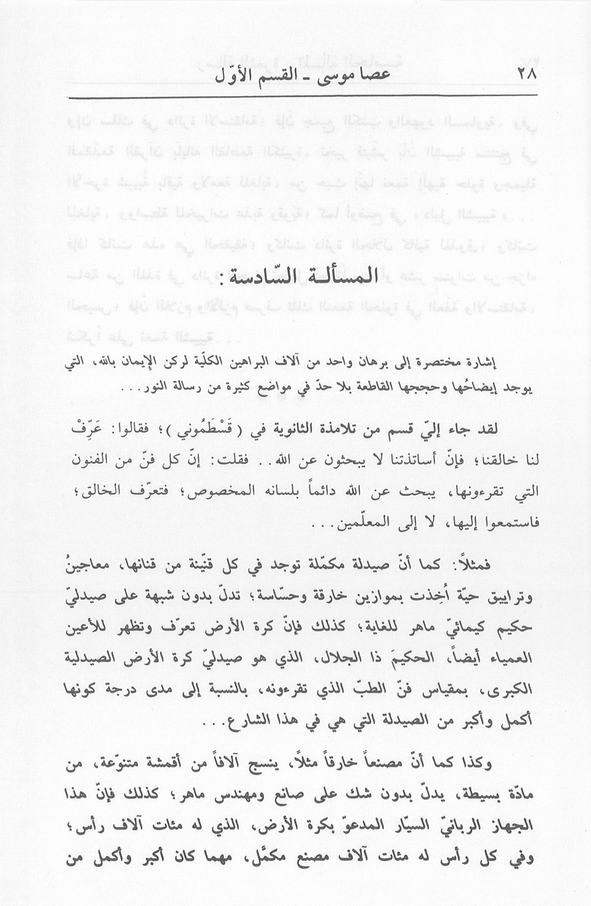 ٢٨
عصا موسى - القسم الأوّل
المسألة السّادسة :
إشارة مختصرة إلى برهان واحد من آلاف البراهين الكلّية لركن الإيمان بالله، التي
يوجد إيضاحُها وحججها القاطعة بلا حدّ في مواضع كثيرة من رسالة النور...
لقد جاء إليّ قسم من تلامذة الثانوية في ( قَسْطَمُوني )؛ فقالوا: عَرِّفْ
لنا خالقنا؛ فإنّ أساتذتنا لا يبحثون عن الله.. فقلت: إنّ كل فنّ من الفنون
التي تقرءونها، يبحث عن الله دائماً بلسانه المخصوص؛ فتعرّف الخالق؛
فاستمعوا إليها، لا إلى المعلّمين...
فمثلاً: كما أنّ صيدلة مكمّلة توجد في كل قنّينة من قنانها، معاجينُ
وترابيق حيّة أُخِذت بموازين خارقة وحسّاسة؛ تدلّ بدون شبهة على صيدليّ
حكيم كيمائيّ ماهر للغاية؛ كذلك فإنّ كرة الأرض تعرّف وتظهر للأعين
العمياء أيضاً، الحكيمَ ذا الجلال، الذي هو صيدليّ كرة الأرض الصيدلية
الكبرى، بمقياس فنّ الطبّ الذي تقرءونه، بالنسبة إلى مدى درجة كونها
أكمل وأكبر من الصيدلة التي هي في هذا الشارع...
وكذا كما أنّ مصنعاً خارقاً مثلاً، ينسج آلافاً من أقمشة متنوّعة، من
مادّة بسيطة، يدلّ بدون شك على صانع ومهندس ماهر؛ كذلك فإنّ هذا
الجهاز الربانيّ السيّار المدعوّ بكرة الأرض، الذي له مئات آلاف رأس؛
وفي كل رأس له مئات آلاف مصنع مكمَّل، مهما كان أكبر وأكمل من